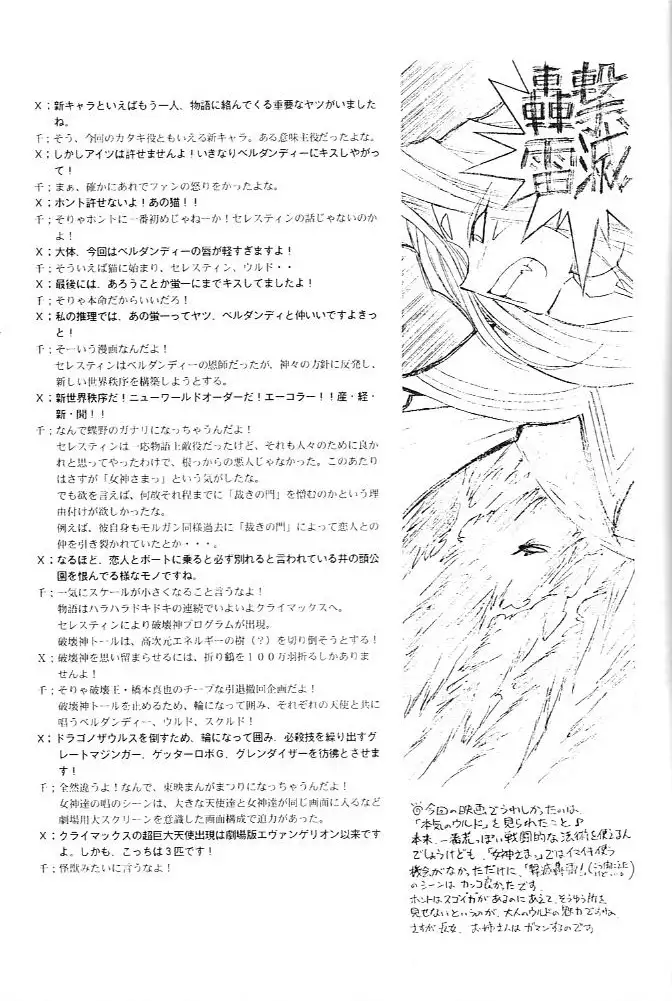 X；新キャラといえばもう一人、物語に絡んでくる重要なヤツがいました
ね。
千；そう、今回のカタキ役ともいえる新キャラ。ある意味主役だったよな。
X；しかしアイツは許せませんよ！いきなりベルダンディーにキスしやがっ
て！
千；まぁ、確かにあれでファンの怒りをかったよな。
X；ホント許せないよ！あの猫！！
千；そりゃホントに一番初めじゃねーか！セレスティンの話じゃないのか
よ！
X；大体、今回はベルダンディーの唇が軽すぎますよ！
千；そういえば猫に始まり、セレスティン、ウルド・・
X；最後には、あろうことか蛍一にまでキスしてましたよ！
千；そりゃ本命だからいいだろ！
X；私の推理では、あの蛍一ってヤツ、ベルダンディと仲いいですよきっ
と！
千；そーいう漫画なんだよ！
セレスティンはベルダンディーの恩師だったが、神々の方針に反発し、
新しい世界秩序を構築しようとする。
X；新世界秩序だ！ニューワールドオーダーだ！エーコラー！！産・経・
新・聞！！
千；なんで蝶野のガナリになっちゃうんだよ！
セレスティンは一応物語上敵役だったけど、それも人々のために良か
れと思ってやったわけで、根っからの悪人じゃなかった。このあたり
はさすが「女神さまっ」という気がしたな。
でも欲を言えば、何故それ程までに「裁きの門」を憎むのかという理
由付けが欲しかったな。
例えば、彼自身もモルガン同様過去に「裁きの門」によって恋人との
仲を引き裂かれていたとか・・・。
X；なるほど、恋人とボートに乗ると必ず別れると言われている井の頭公
園を恨んでる様なモノですね。
千；一気にスケールが小さくなること言うなよ！
物語はハラハラドキドキの連続でいよいよクライマックスへ。
セレスティンにより破壊神プログラムが出現。
破壊神トールは、高次元エネルギーの樹（？）を切り倒そうとする！
X；破壊神を思い留まらせるには、折り鶴を１００万羽折るしかありま
せんよ！
千；そりゃ破壊王・橋本真也のチープな引退撤回企画だよ！
破壊神トールを止めるため、輪になって囲み、それぞれの天使と共に
唱うベルダンディー、ウルド、スクルド！
X；ドラゴノザウルスを倒すため、輪になって囲み、必殺技を繰り出すグ
レートマジンガー、ゲッターロボＧ、グレンダイザーを彷彿とさせま
す！
千；全然違うよ！なんで、東映まんがまつりになっちゃうんだよ！
女神達の唱のシーンは、大きな天使達と女神達が同じ画面に入るなど
劇場用大スクリーンを意識した画面構成で迫力があった。
X；クライマックスの超巨大天使出現は劇場版エヴァンゲリオン以来です
よ。しかも、こっちは３匹です！
千；怪獣みたいに言うなよ！
撃滅
轟雷
◎今回の映画でうれしかったのは、
「本気のウルド」を見られたこと♪
本来、一番荒っぽい戦闘的な法術を使えるん
でしょうけども、「女神さまっ」ではイマイチ使う
機会がなかっただけに、「撃滅轟雷！」
のシーンはカッコ良かったです。
ホントはスゴイ力があるのにあえて、そうゆう所を
見せないというのが、大人のウルドの魅力ですよね。
さすが長女、お姉さんはガマンするのです